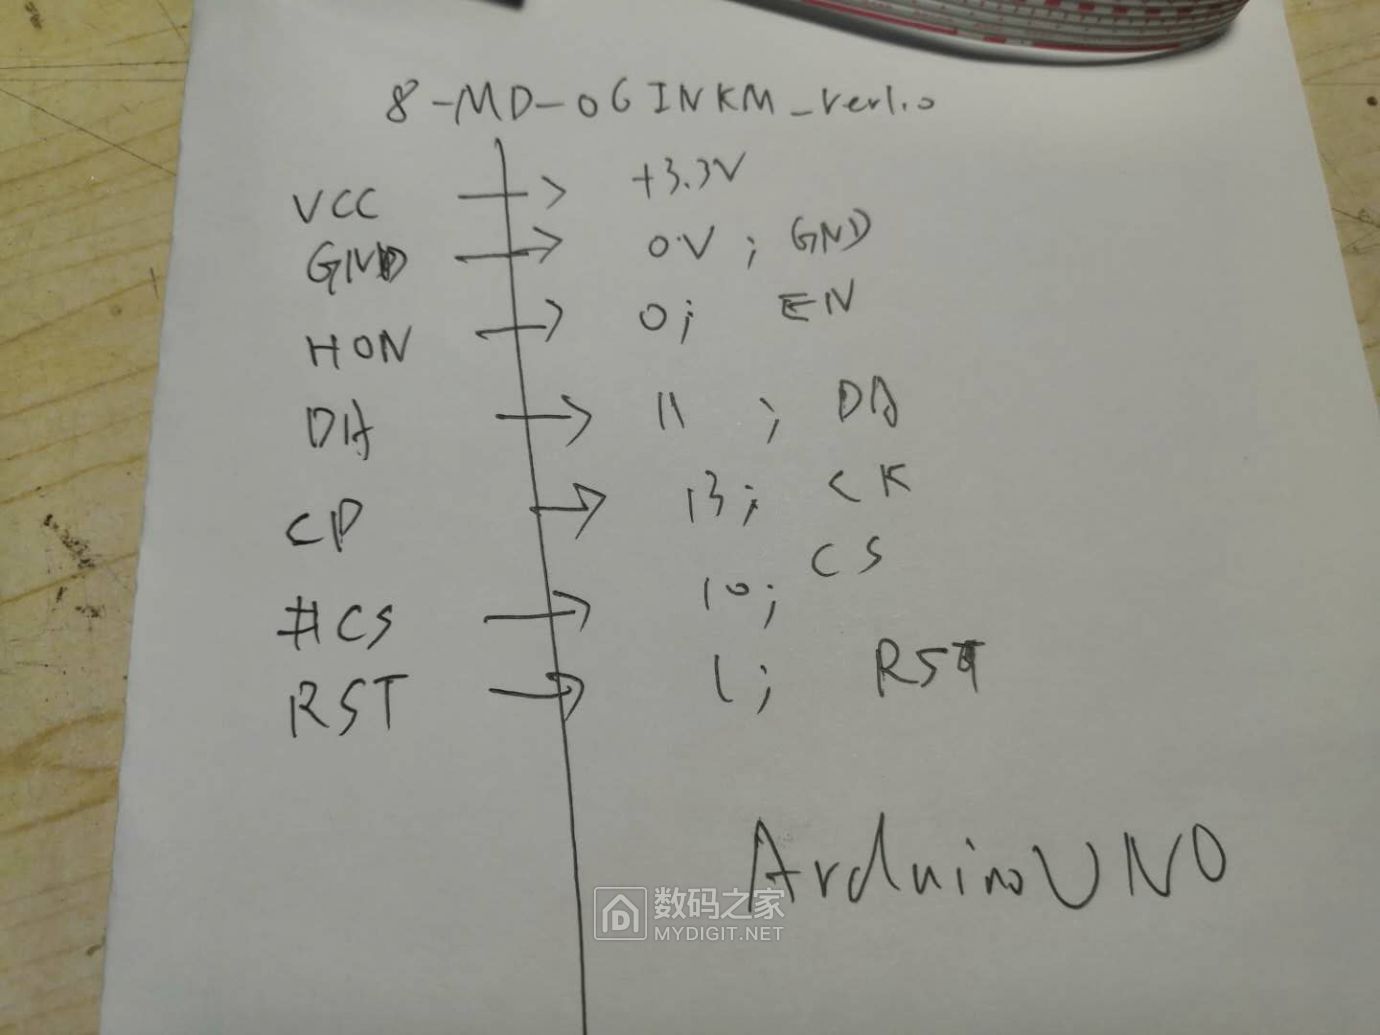 8-MD-06INKM_ver1.0
VCC → +3.3V
GND → 0V ; GND
HON → 0; EN
DA → 11 ; DA
CP → 13; CK
#CS → 10; CS
RST → 1; RST
Arduino UNO
数码之家
MYDIGIT.NET